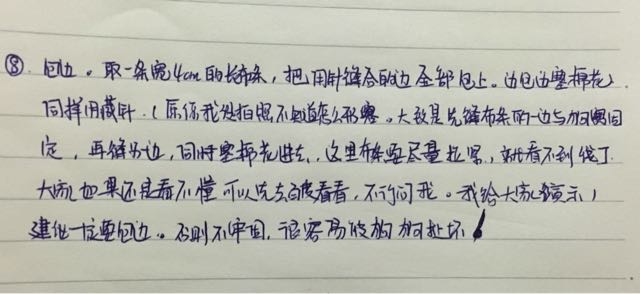 ⑧. 包边。取一条宽4cm的长布条,把用针缝合的边全部包上。边包边塞棉花,
同样用藏针。(原谅我没拍照不知道怎么形容。大致是先缝布条的一边与狗窝固
定,再缝另边,同时塞棉花进去,这里布条要尽量拉紧,就看不到线了.
大家如果还是看不懂可以先去百度看看,不行问我。我给大家演示)
建议一定要包边。否则不牢固,很容易被狗狗扯坏